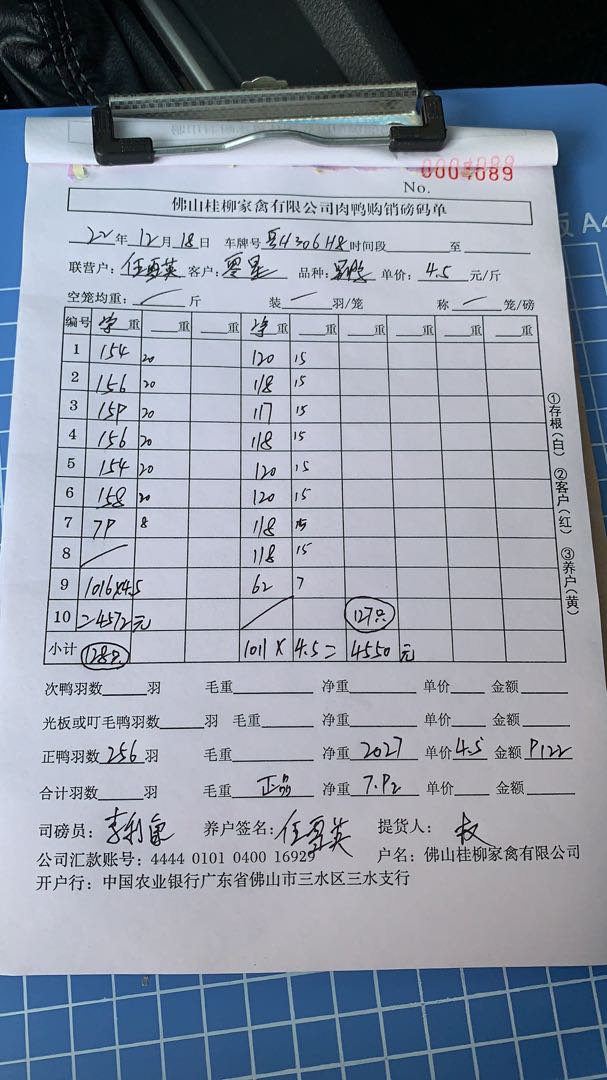 0004089
No.
佛山桂柳家禽有限公司肉鸭购销磅码单
22年12月18日 车牌号 H306H8 时间段 至
联营户: 任 英 客户: 零星 品种: 单价: 4.5 元/斤
空笼均重: 斤 装 羽/笼 称 笼/磅
编号 净重 重 重 净重 重 重 重 重 重
1 154 20 120 15
2 156 20 118 15
3 159 20 117 15
4 156 20 118 15
5 154 20 120 15
6 158 20 120 15
7 79 8 118 15
8 118 15
9 1016×4.5 62 7
10 =4572元 127只
小计 128只 1011 × 4.5 = 4550 元
①存根(白) ②客户(红) ③养户(黄)
次鸭羽数 羽 毛重 净重 单价 金额
光板或叮毛鸭羽数 羽 毛重 净重 单价 金额
正鸭羽数 256 羽 毛重 净重 2027 单价 4.5 金额 9122
合计羽数 羽 毛重 正品 净重 7.92 单价 金额
司磅员: 李 养户签名: 任 英 提货人:
公司汇款账号: 4444 0101 0400 16929 户名: 佛山桂柳家禽有限公司
开户行: 中国农业银行广东省佛山市三水区三水支行
A4